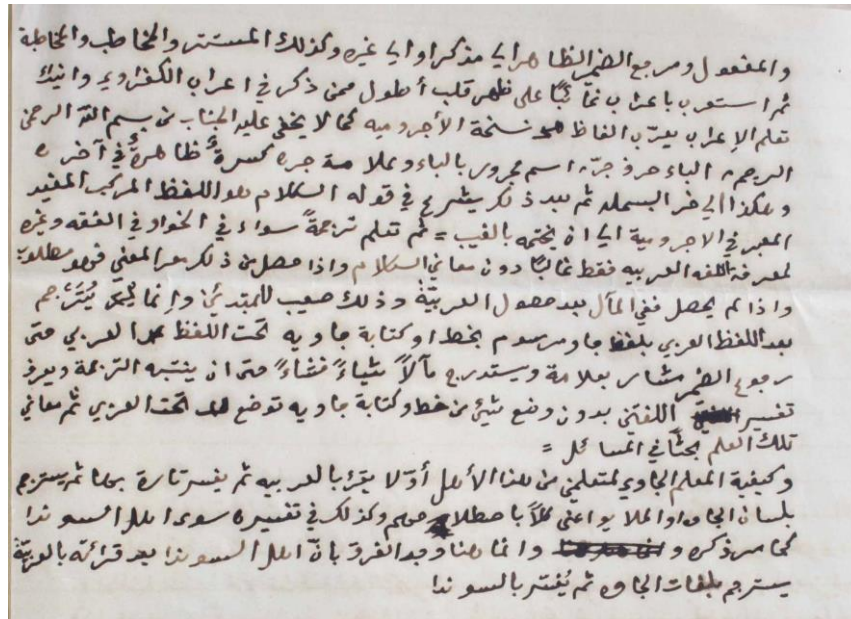 والمفعول ومرجع الضمير الظاهر اي مذكرا او الي غيره وكذلك المستتر والمخاطب والمخاطبة
ثم استعرب باعراب غائبًا على ظهر قلب أطول ممن ذكر في اعراب الكفراوي وانيك
تعلم الإعراب يعرّب الفاظ نسخة الأجروميه كما لا يخفى عليه الجناب من بسم الله الرحمن
الرحيم الباء حرف جرّ اسم مجرور بالباء وعلامة جره كسرةٌ ظاهرةٌ في آخره
وهكذا الي آخر البسمله ثم بعد ذلك يشرع في قوله الكلام هو اللفظ المركب المفيد
المعبر في الاجرومية الي ان يختمه بالغيب = ثم تعلم ترجمةً سواء في النحو او في الفقه وغيره
لمعرفة اللغه العربيه فقط غالبًا دون معاني الكلام واذا حصل من ذلك مع المعني فهو مطلوب
واذا لم يحصل ففي المآل بعد حصول العربيّة وذلك صعيب للمبتدئين وانما يُتَرجم
بعد اللفظ العربي بلفظ جاو مرسوم بخط او كتابة جاويه تحت اللفظ العربي حتى
رجوع الضمير مشار بعلامة ويستدرج مآلاً شيأً فشأً حتى ان ينتبه الترجمة ويعرف
تفسير اللفتى بدون وضع شيئ من خط وكتابة جاويه توضع تحت العربي ثم معاني
تلك العلم بحثًا في المسائل =
وكيفية المعلم الجاوي لمتعلمي من هذا الأهل أوّلا يقرئ بالعربيه ثم يفسر تارة بها ثم يسترجم
بلسان الجاوه او الملايو اعني كلاً باصطلاحهم وكذلك في تفسيره سوى اهل السوندا
كما مر ذكره وانما هنا وجد الفرق بانّ اهل السوندا بعد قرائته بالعربيّة
يسترجم بلغات الجاوه ثم يُفسّر بالسوندا